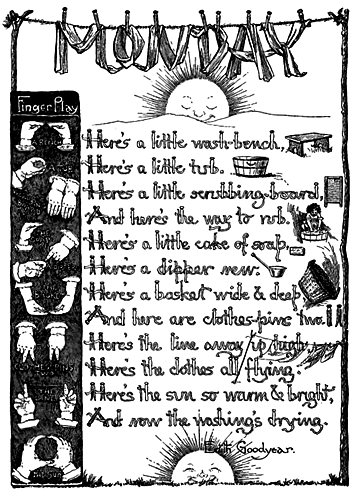 MONDAY
Finger Play
Here's a little wash-bench,
Here's a little tub.
Here's a little scrubbing-board,
And here's the way to rub.
Here's a little cake of soap,
Here's a dipper new:
Here's a basket wide & deep,
And here are clothes-pins two.
Here's the line away up high,
Here's the clothes all flying.
Here's the sun so warm & bright,
And now the washing's drying.
Edith Goodyear.